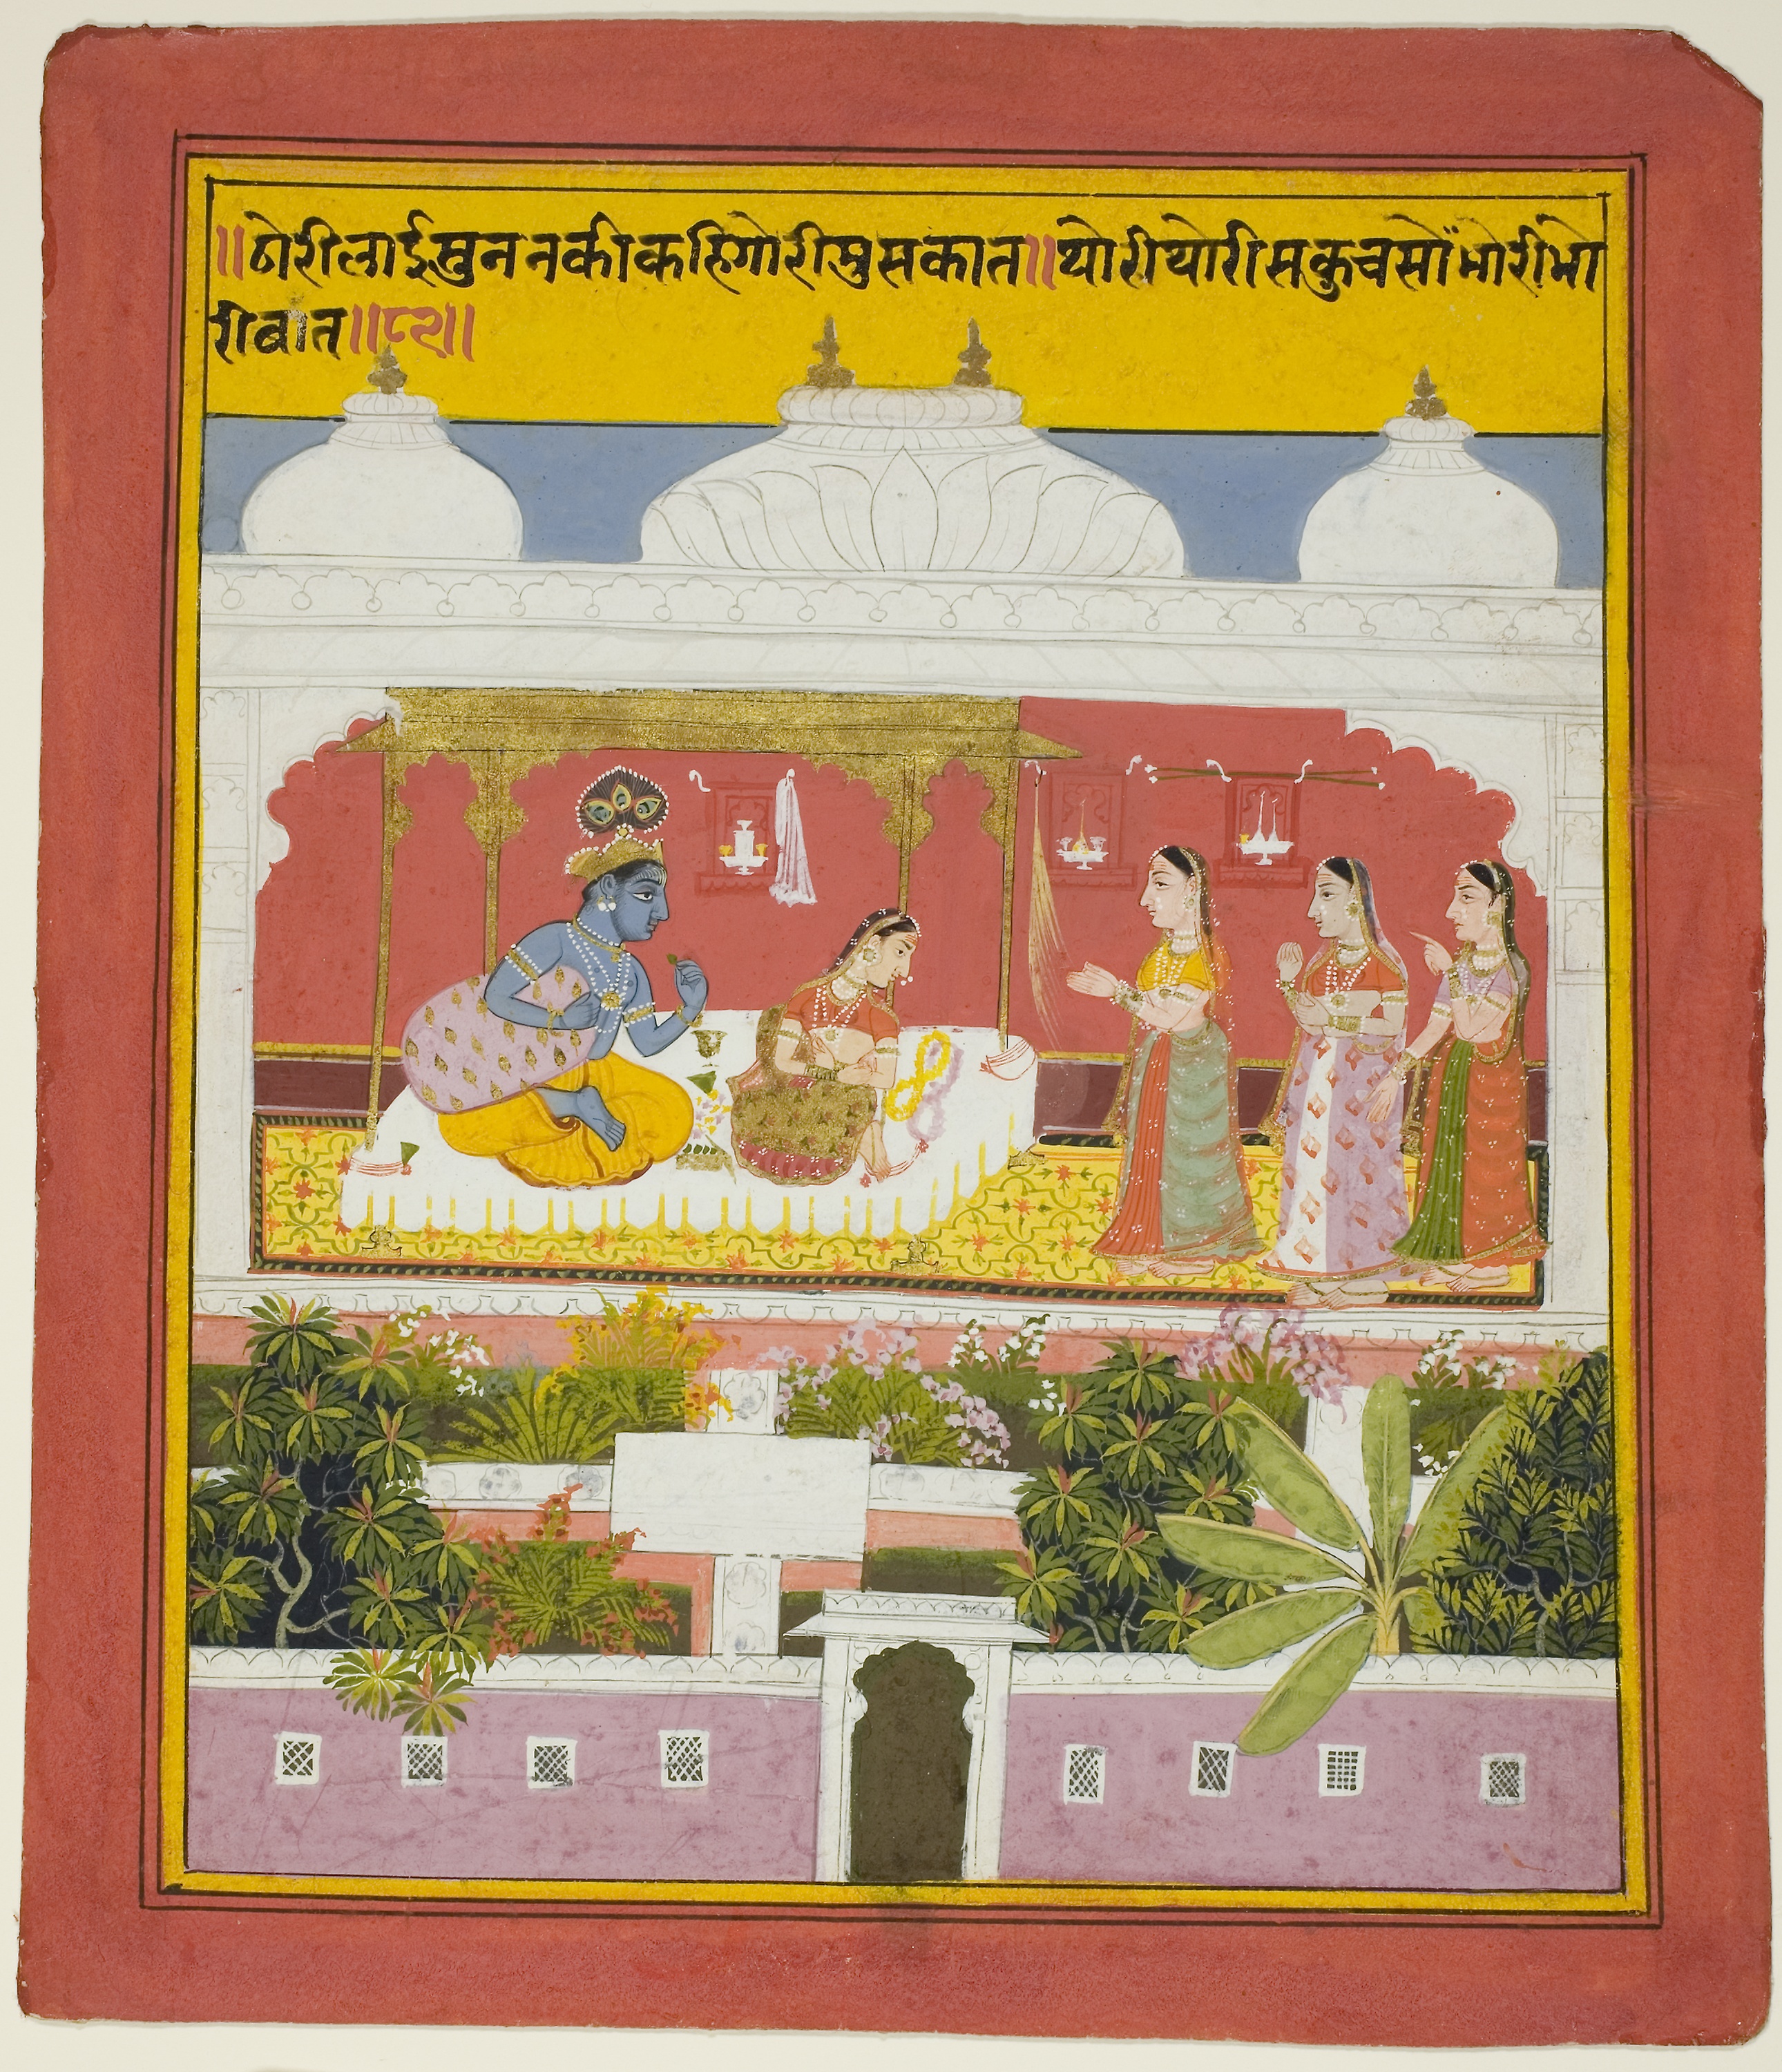 ॥ढोरीलाईसुननकीकहिगोरीमुसकात॥थोरीथोरीसकुचसोंभोरीभो
रीबात॥८२॥